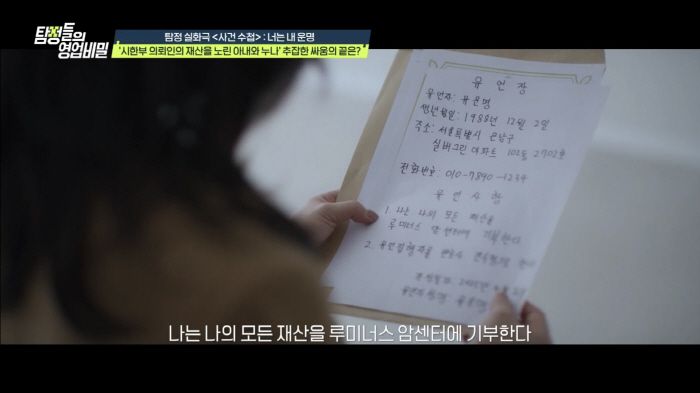 탐정들의
영업비밀
탐정 실화극 <사건 수첩> : 너는 내 운명
'시한부 의뢰인의 재산을 노린 아내와 누나' 추잡한 싸움의 끝은?
유 언 장
유언자: 유운명
생년월일: 1988년 12월 2일
주소: 서울특별시 은남구
실버그린 아파트 102동 2702호
전화번호: 010-7890-1234
유 언 사 항
1. 나는 나의 모든 재산을
루미너스 암센터에 기부한다
2. 유언집행자를 변호사
나는 나의 모든 재산을 루미너스 암센터에 기부한다